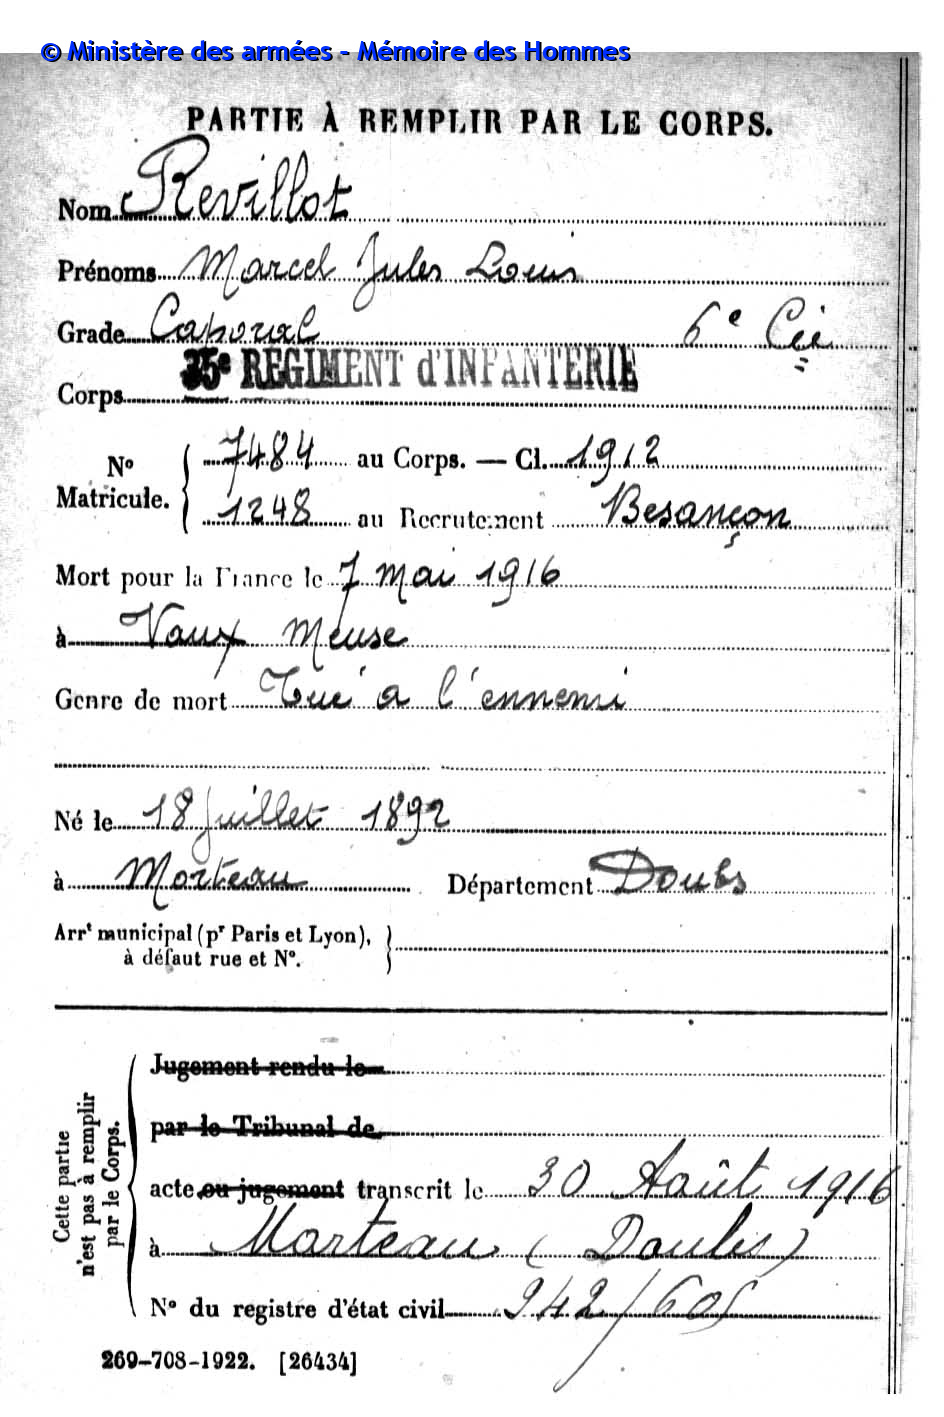 © Ministère des armées - Mémoire des Hommes
PARTIE À REMPLIR PAR LE CORPS.
Nom Revillot
Prénoms Marcel Jules Louis
Grade Caporal 6e Cie
Corps 35e REGIMENT d'INFANTERIE
No Matricule. { 7484 au Corps. — Cl. 1912
1248 au Recrutement Besançon
Mort pour la France le 7 mai 1916
à Vaux Meuse
Genre de mort Tué a l'ennemi
Né le 18 Juillet 1892
à Morteau Département Doubs
Arrt municipal (pr Paris et Lyon), }
à défaut rue et No.
Cette partie n'est pas à remplir par le Corps.
Jugement rendu le
par le Tribunal de
acte ou jugement transcrit le 30 Août 1916
à Morteau (Doubs)
No du registre d'état civil 242/605
269-708-1922. [26434]